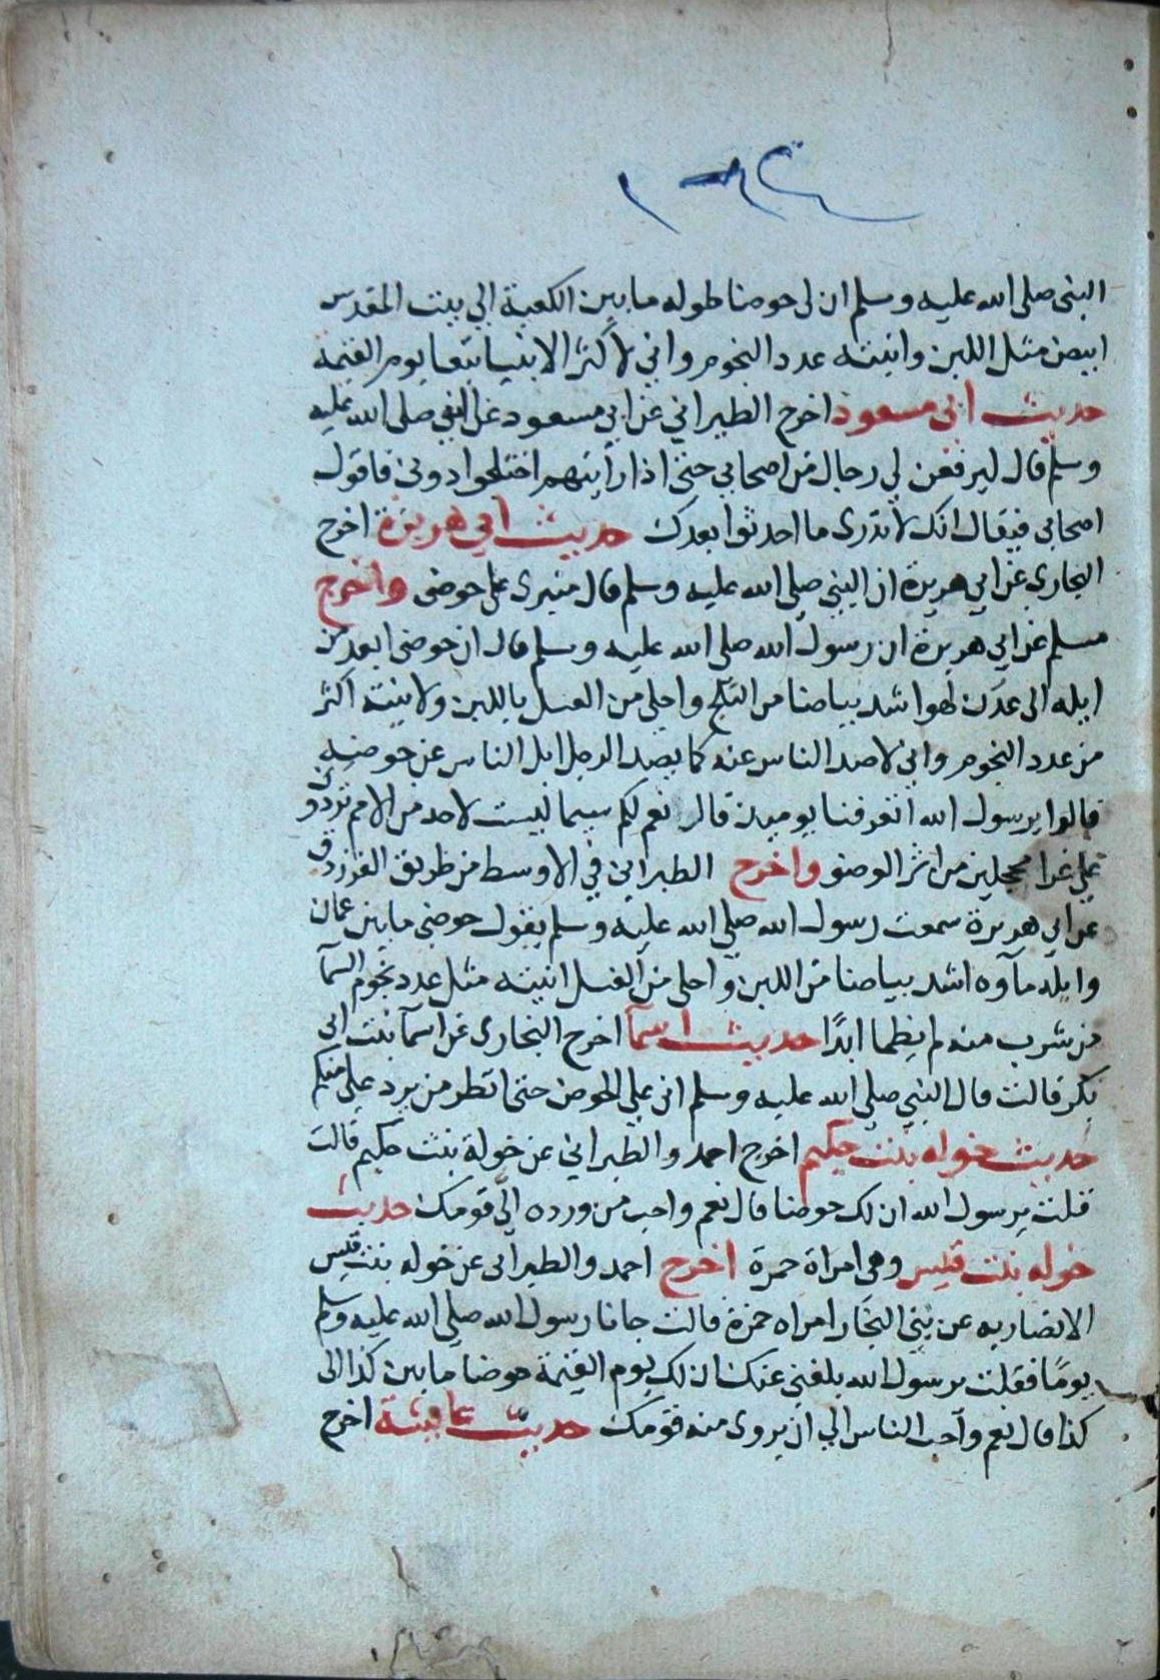 النبى صلى الله عليه وسلم ان لى حوضا طوله ما بين الكعبة الي بيت المقدس
ابيض مثل اللبن وانيته عدد النجوم واني لاكثر الانبيا تبعا يوم القيمة
حديث ابى مسعود اخرج الطبراني عن ابي مسعود عن النبي صلى الله عليه
وسلم قال ليرفعن لي رجال من اصحابي حتى اذا رأيتهم اختلجوا دونى فاقول
اصحابي فيقال انك لا تدرى ما احدثوا بعدك حديث ابي هريرة اخرج
البخاري عن ابي هريرة ان النبي صلى الله عليه وسلم قال منبرى على حوضى واخرج
مسلم عن ابي هريرة ان رسول الله صلى الله عليه وسلم قال ان حوضى ابعد من
ايله الى عدن لهوا شد بياضا من الثلج واحلى من العسل باللبن ولانيته اكثر
من عدد النجوم واني لاصد الناس عنه كما يصد الرجل ابل الناس عن حوضه
قالوا يرسول الله اتعرفنا يوميذ قال نعم لكم سيما ليست لاحد من الامم تردون
علي غرا محجلين من اثر الوضو واخرج الطبراني في الاوسط من طريق الفرزدق
عن ابي هريرة سمعت رسول الله صلى الله عليه وسلم يقول حوضى ما بين عمان
وايله مآوه اشد بياضا من اللبن واحلى من العسل انيته مثل عدد نجوم السمآ
من شرب منه لم يظما ابدًا حديث اسمآ اخرج البخارى عن اسمآ بنت ابى
بكر قالت قال النبي صلي الله عليه وسلم انى علي الحوض حتى انظر من يرد علي منكم
حديث خوله بنت حكيم اخرج احمد والطبراني عن خولة بنت حكيم قالت
قلت يرسول الله ان لك حوضا قال نعم واحب من ورده اليّ قومك حديث
خوله بنت قيس وهى امراة حمزة اخرج احمد والطبرانى عن خوله بنت قيس
الانصاريه عن بني النجار امراه حمزة قالت جانا رسول الله صلى الله عليه وسلم
يومًا فقلت يرسول الله بلغني عنك ان لك يوم القيمة حوضا ما بين كذا الى
كذا قال نعم وآحب الناس الي ان يروى منه قومك حديث عايشة اخرج